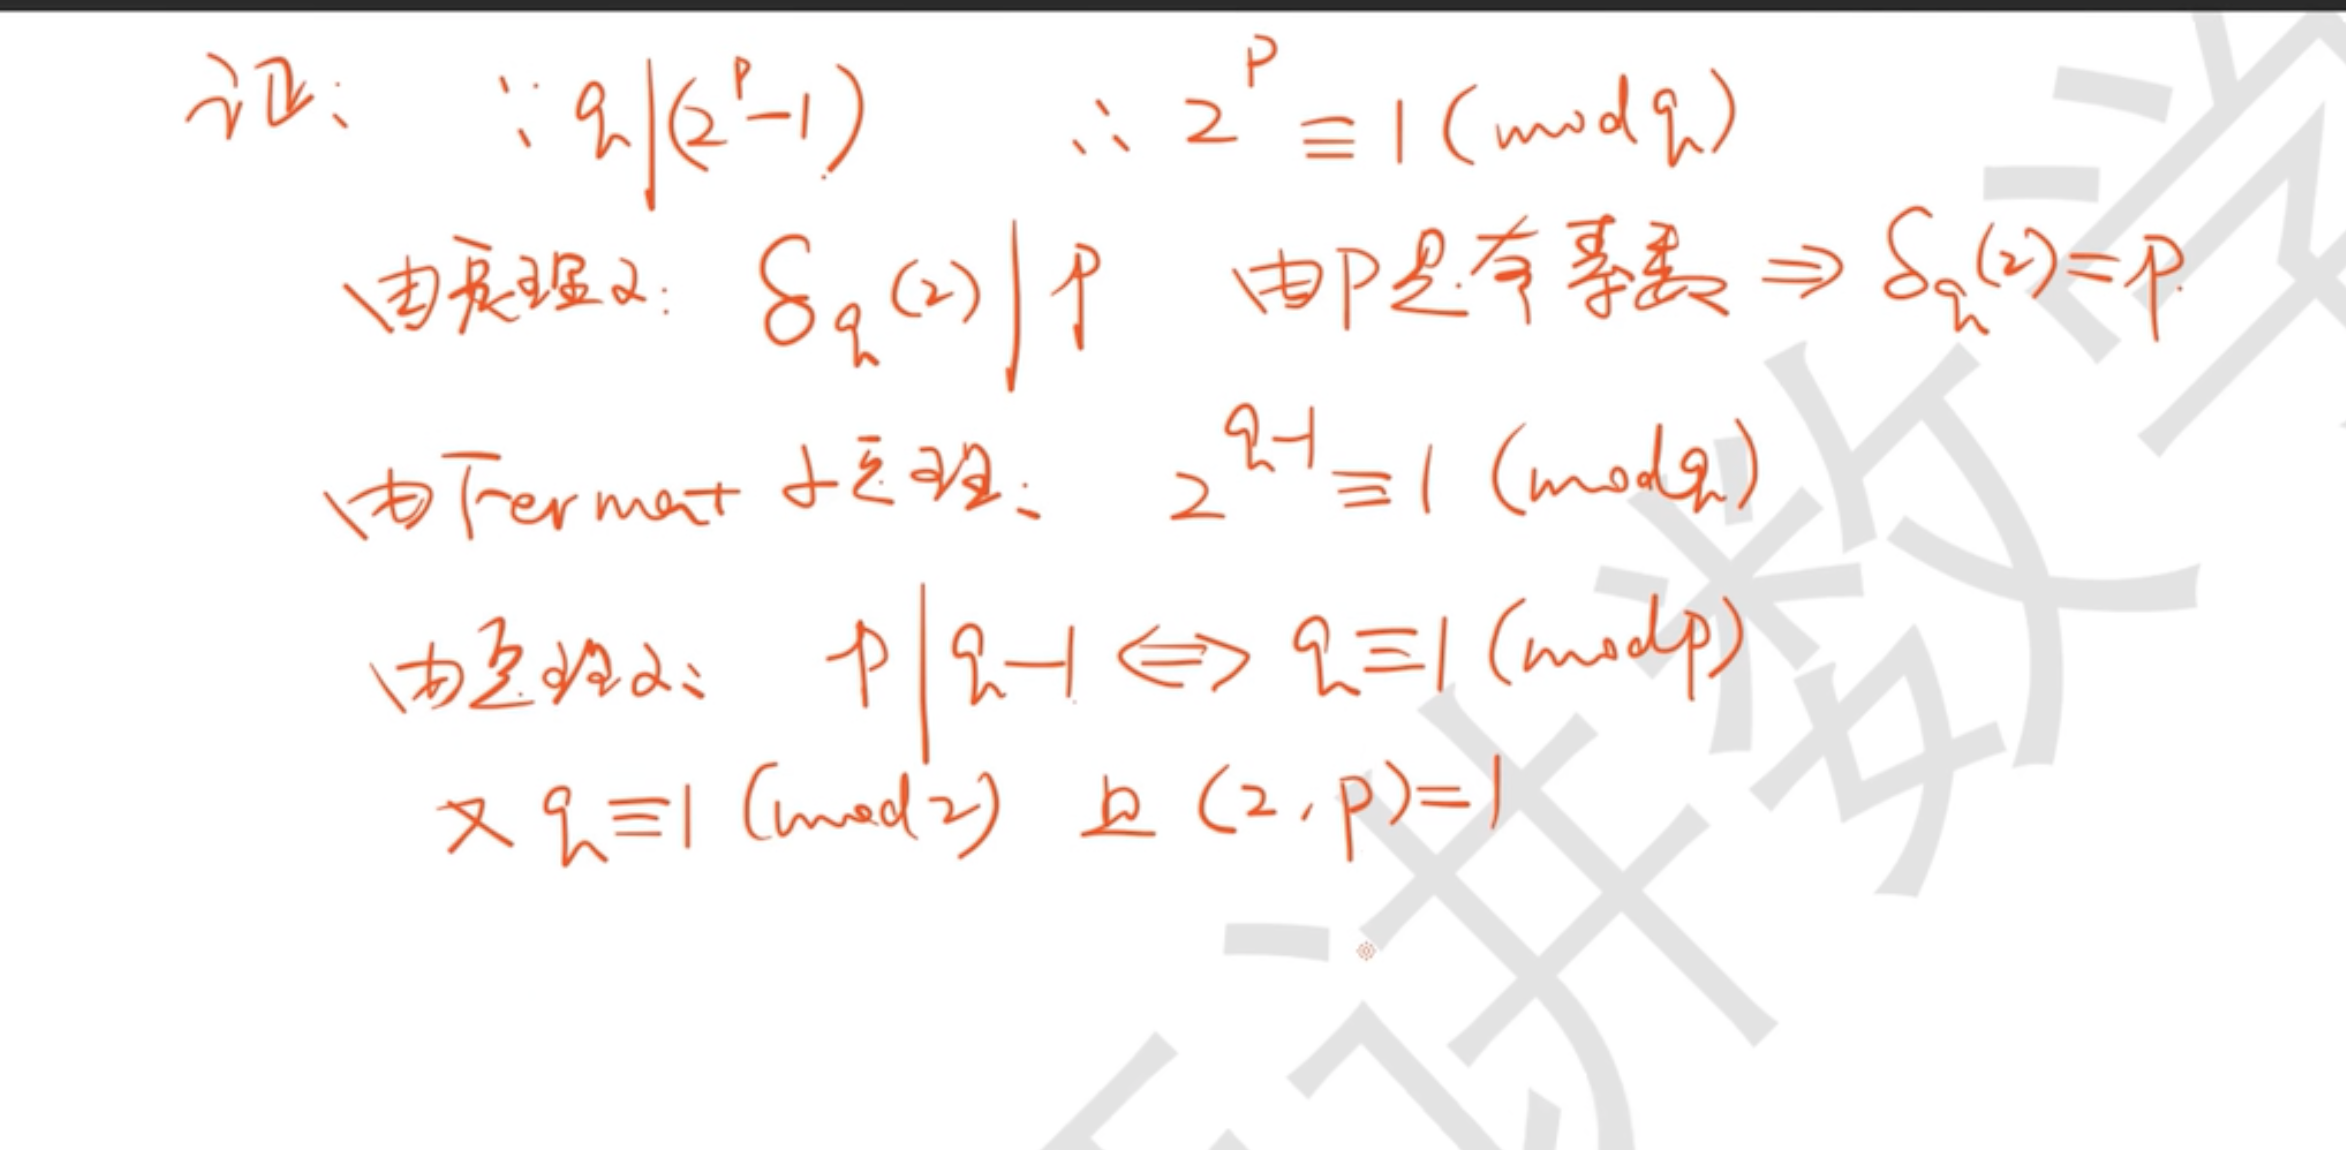 证: ∵ q|(2^p-1) ∴ 2^p ≡ 1 (mod q)
由定理2: δ_q(2)|p 由p是奇素数 ⇒ δ_q(2)=p.
由Fermat小定理: 2^{q-1} ≡ 1 (mod q)
由定理2: p|q-1 ⇔ q≡1 (mod p)
又 q≡1 (mod 2) 且 (2,p)=1